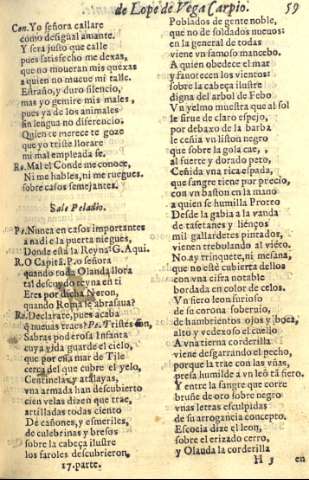 de Lope de Vega Carpio. 59
Con. Yo señora callare
como desigual amante.
Y sera justo que calle
pues satisfecho me dexas,
que no moueran mis quexas
a quien no mueue mi talle.
Estraño, y duro silencio,
mas yo gemire mis males,
pues ya de los animales
en lengua no diferencio.
Quien te merece te goze
que yo triste llorare
mi mal empleada fe.
Re. Mal el Conde me conoce,
Ni me hables, ni me ruegues.
sobre casos semejantes.
Sale Peladio.
Pe. Nunca en casos importantes
a nadie la puerta niegues,
Donde està la Reyna? G. Aqui.
R. O Capitã. P. o señora
quando toda Olanda llora
tal descuydo reyna en ti
Eres por dicha Neron,
quando Roma se abrasaua?
Re. Declarate, pues acaba
q̃ nueuas traes? Pe. Tristes son,
Sabras poderosa Infanta
cuya vida guarde el cielo,
que por essa mar de Tile
cerca del que cubre el yelo,
Centinelas, y atalayas,
vna armada han descubierto
cien velas dizen que trae,
artilladas todas ciento
De cañones, y esmeriles,
de culebrinas y bresos
sobre la cabeça ilustre
los faroles descubrieron,
17. parte.
Poblados de gente noble,
que no de soldados nueuos:
en la general de todas
viene vn famoso mancebo.
A quien obedece el mar
y fauorecen los vientos:
sobre la cabeça ilustre
digna del arbol de Febo
Vn yelmo muestra que al sol
le sirue de claro espejo,
por debaxo de la barba
le ceñia vn liston negro
que sobre la gola cae,
al fuerte y dorado peto,
Ceñida vna rica espada,
que sangre tiene por precio,
con vn baston en la mano
a quien se humilla Proteo
Desde la gabia a la vanda
de tafetanes y lienços
mil gallardetes pintados,
vienen trebolando al viẽto.
No ay trinquete, ni mesana,
que no estè cubierta dellos
con vna cifra notable
bordada en color de celos.
Vn fiero leon furioso
de su corona soberuio,
de hambrientos ojos y boca,
alto y vedexoso el cuello
A vna tierna corderilla
viene desgarrando el pecho,
porque la trae con las vñas,
presa humilde a vn leõ tã fiero.
Y entre la sangre que corre
bruñe de oro sobre negro
vnas letras esculpidas
de su arrogancia concepto.
Escocia dize el leon,
sobre el erizado cerro,
y Olauda la corderilla
H 3 en